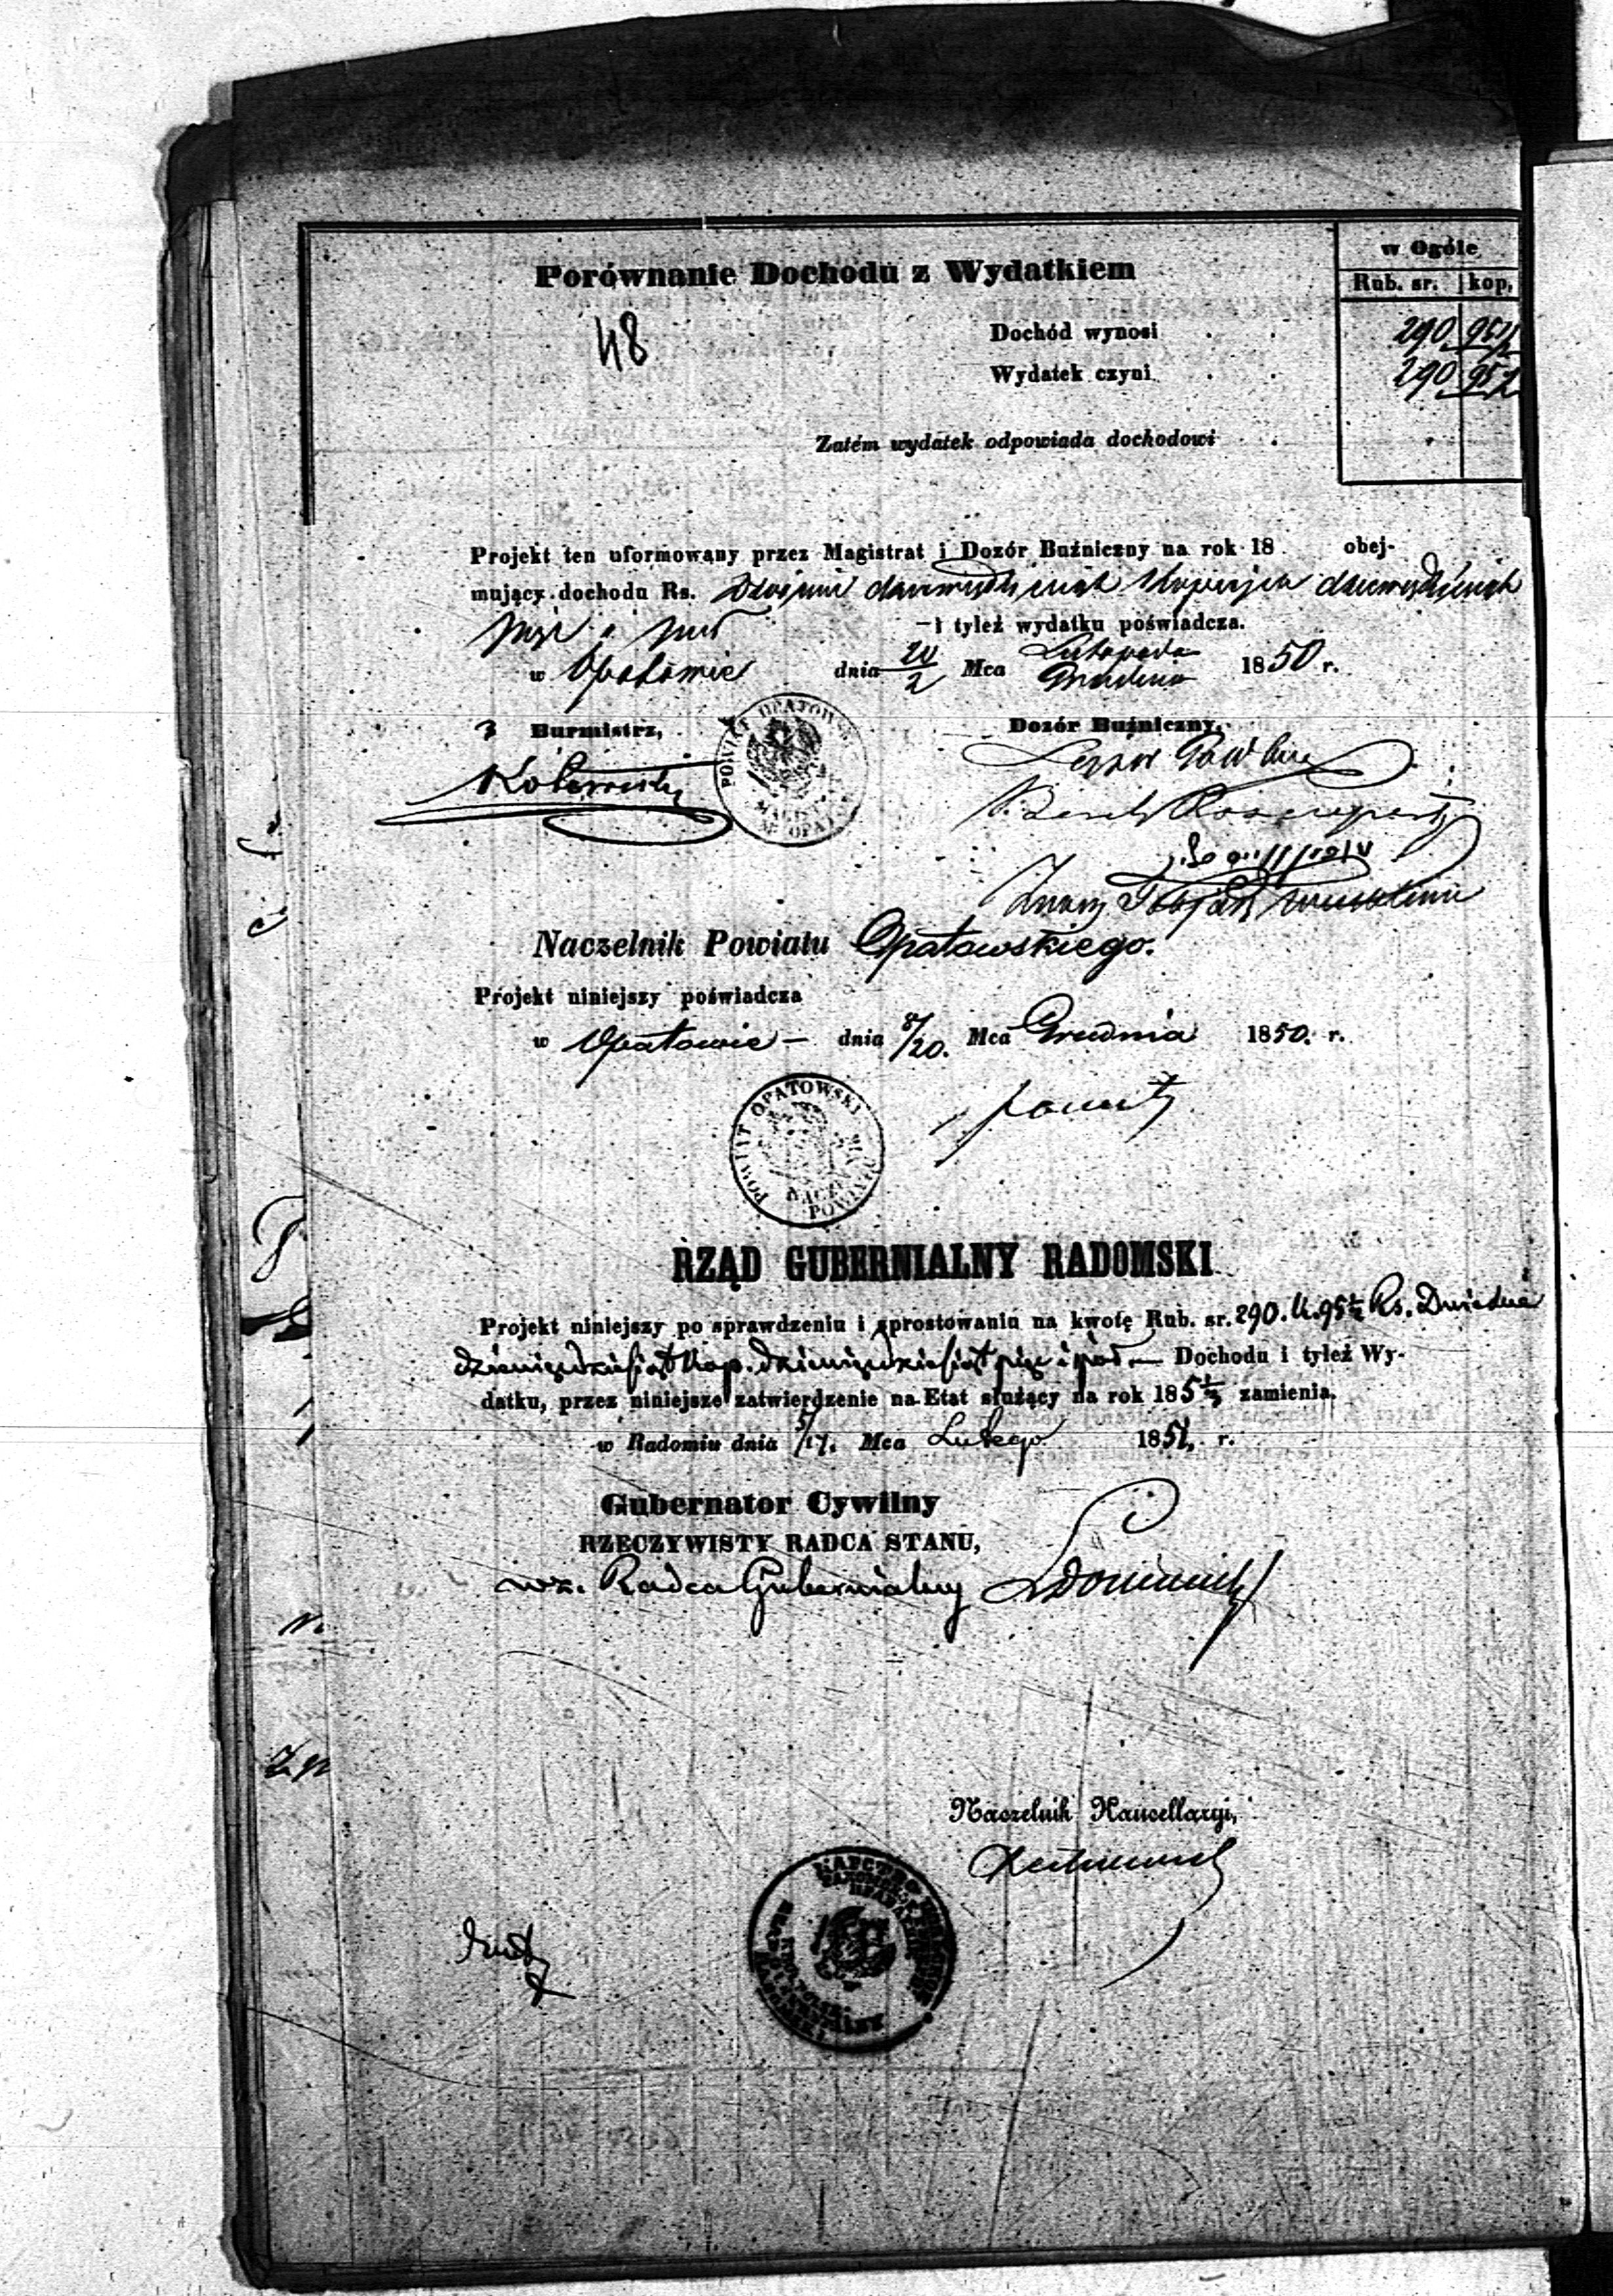 w Ogóle
Porównanie Dochodu z Wydatkiem
Rub. sr. kop.
48
Dochód wynosi . . 290 95½
Wydatek czyni . . 290 95½
Zatém wydatek odpowiada dochodowi . .
Projekt ten uformowany przez Magistrat i Dozór Buźniczny na rok 18 obej-
mujący dochodu Rs. dziewięćdziesiąt dziewięćdziesiąt
pięć i pół — i tyleż wydatku poświadcza.
w Opatowie dnia 20/2 Mca Listopada/Grudnia 1850 r.
Burmistrz,
Dozór Buźniczny,
POWIAT OPATOWSKI
Naczelnik Powiatu Opatowskiego.
Projekt niniejszy poświadcza
w Opatowie — dnia 8/20. Mca Grudnia 1850. r.
POWIAT OPATOWSKI
NACZELNIK POWIATU
RZĄD GUBERNIALNY RADOMSKI
Projekt niniejszy po sprawdzeniu i sprostowaniu na kwotę Rub. sr. 290. k. 95½ Rs. Dwieście
dziewięćdziesiąt kop. dziewięćdziesiąt pięć i pół — Dochodu i tyleż Wy-
datku, przez niniejsze zatwierdzenie na Etat służący na rok 185 1/3 zamienia.
w Radomiu dnia 5/17. Mca Lutego 1851. r.
Gubernator Cywilny
RZECZYWISTY RADCA STANU,
wz. Radca Gubernialny
Naczelnik Kancellaryi,